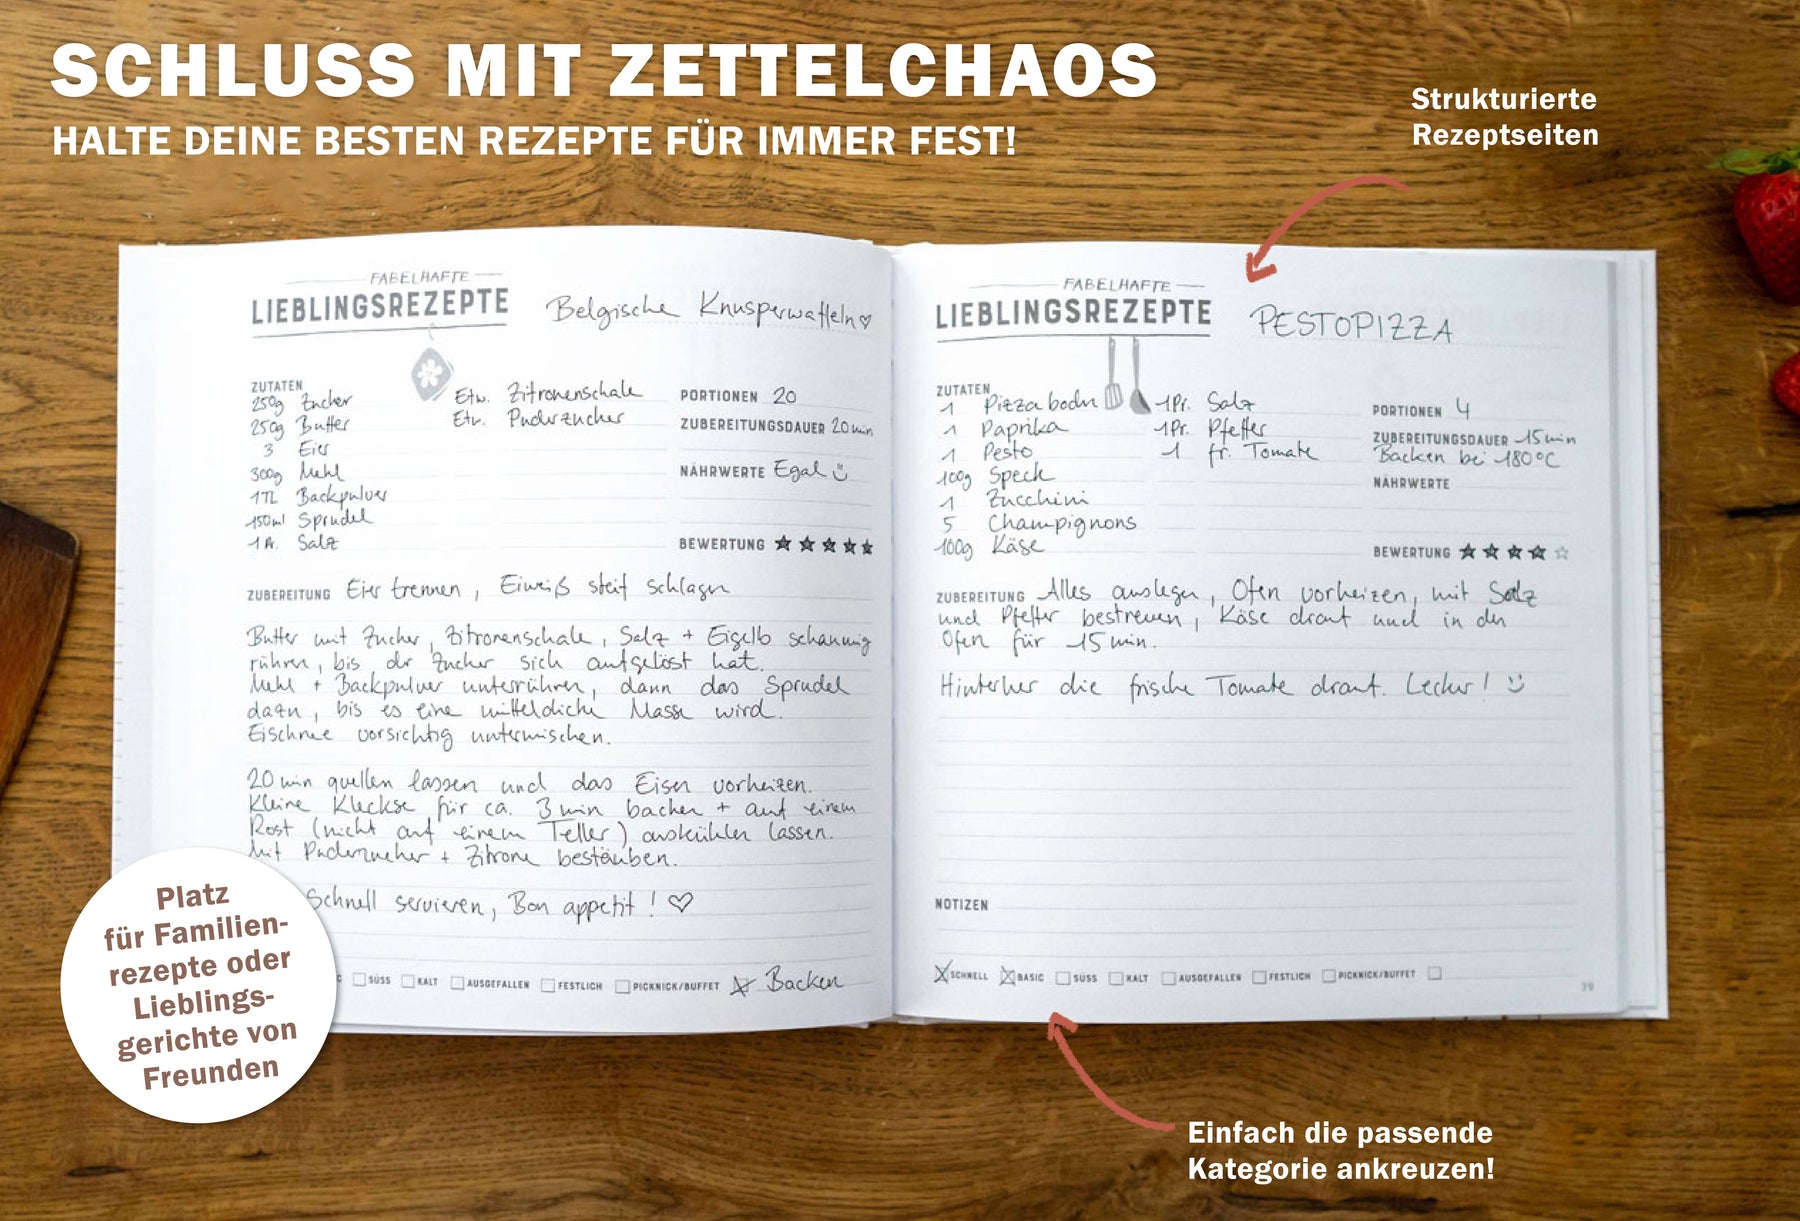 SCHLUSS MIT ZETTELCHAOS
HALTE DEINE BESTEN REZEPTE FÜR IMMER FEST!
Strukturierte
Rezeptseiten
FABELHAFTE
LIEBLINGSREZEPTE
Belgische Knusperwaffeln♡
ZUTATEN
250g Zucker
250g Butter
3 Eier
300g Mehl
1TL Backpulver
150ml Sprudel
Salz
Etw. Zitronenschale
Etw. Puderzucker
PORTIONEN 20
ZUBEREITUNGSDAUER 20min
NÄHRWERTE Egal ☺
BEWERTUNG ★★★★★
ZUBEREITUNG Eier trennen, Eiweiß steif schlagen
Butter mit Zucker, Zitronenschale, Salz + Eigelb schaumig
rühren, bis der Zucker sich aufgelöst hat.
Mehl + Backpulver unterrühren, dann das Sprudel
dazu, bis es eine mitteldicke Masse wird.
Eischnee vorsichtig untermischen.
20 min quellen lassen und das Eisen vorheizen.
Kleine Kleckse für ca. 3 min backen + auf einem
Rost (nicht auf einem Teller) auskühlen lassen.
Mit Puderzucker + Zitrone bestäuben.
Schnell servieren, Bon appetit! ♡
SÜSS KALT AUSGEFALLEN FESTLICH PICKNICK/BUFFET Backen
FABELHAFTE
LIEBLINGSREZEPTE
PESTOPIZZA
ZUTATEN
1 Pizzabodn
1 Paprika
1 Pesto
100g Speck
1 Zucchini
5 Champignons
100g Käse
1Pr. Salz
1Pr. Pfeffer
1 fr. Tomate
PORTIONEN 4
ZUBEREITUNGSDAUER 15min
Backen bei 180°C
NÄHRWERTE
BEWERTUNG ★★★★☆
ZUBEREITUNG Alles auslegen, Ofen vorheizen, mit Salz
und Pfeffer bestreuen, Käse drauf und in den
Ofen für 15 min.
Hinterher die frische Tomate drauf. Lecker! ☺
NOTIZEN
SCHNELL BASIC SÜSS KALT AUSGEFALLEN FESTLICH PICKNICK/BUFFET
39
Platz
für Familien-
rezepte oder
Lieblings-
gerichte von
Freunden
Einfach die passende
Kategorie ankreuzen!